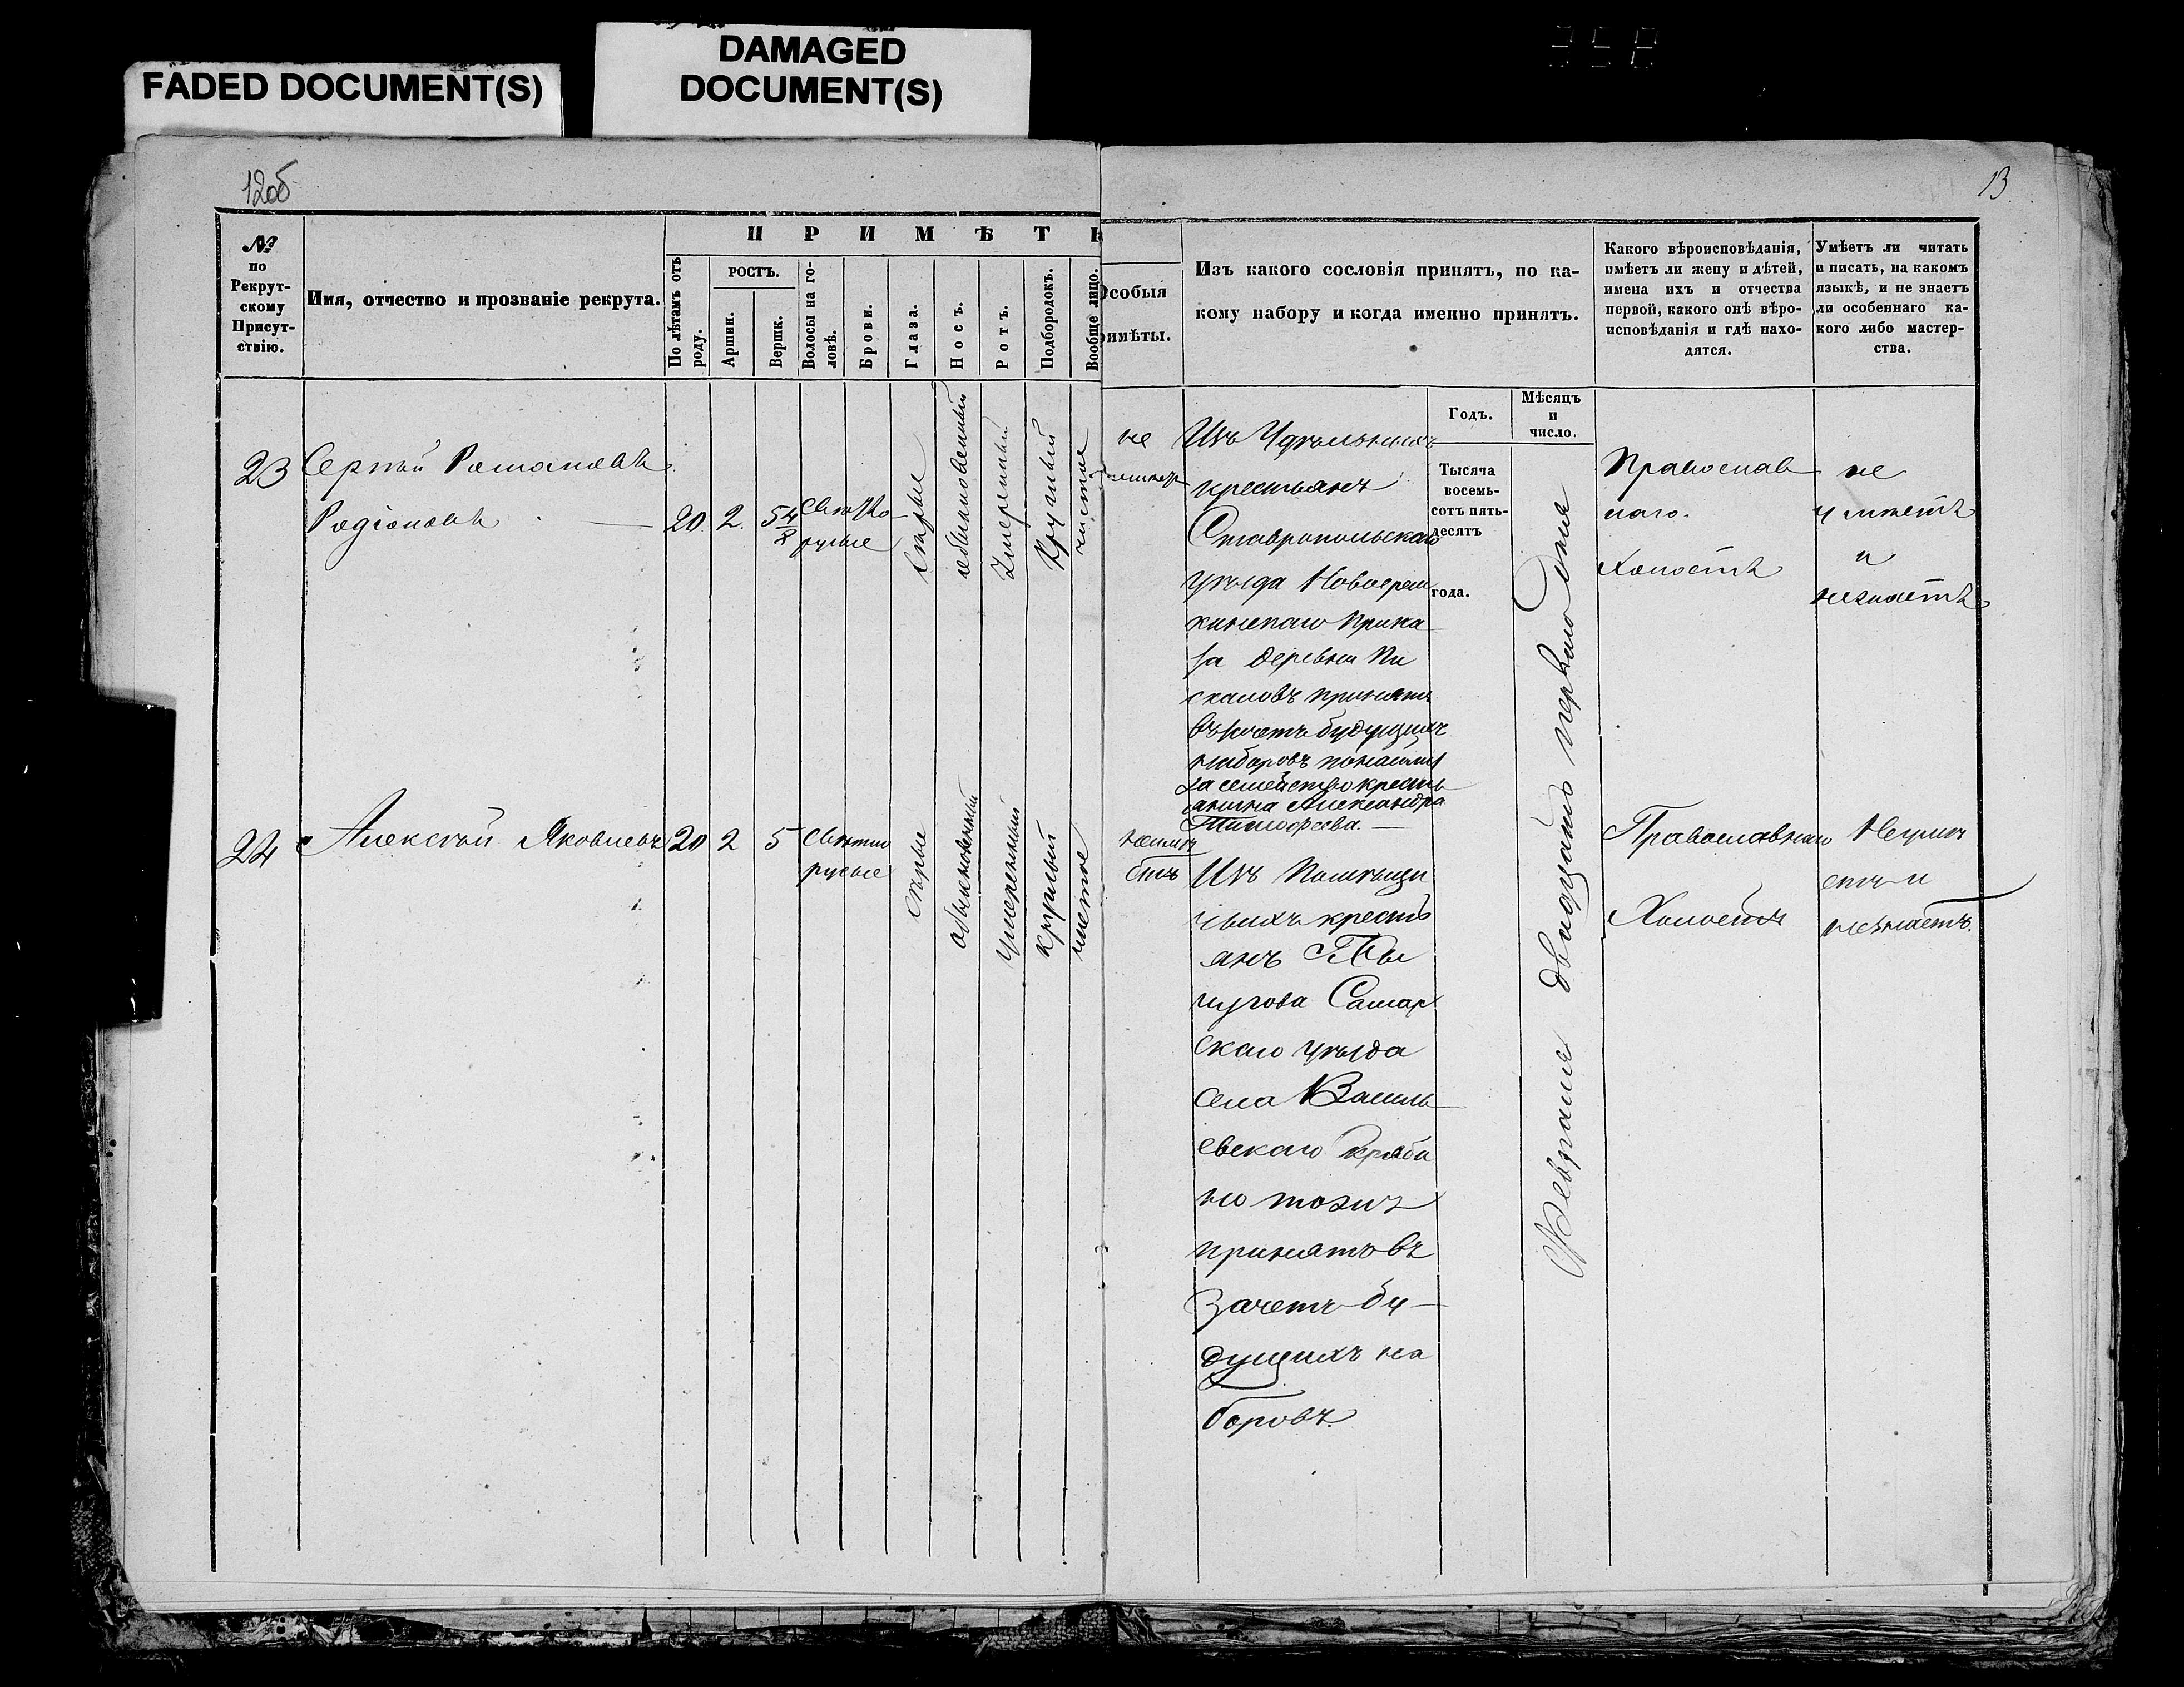 FADED DOCUMENT(S)
DAMAGED
DOCUMENT(S)
12об
13
№
по
Рекрут-
скому
Присут-
ствію.
Имя, отчество и прозваніе рекрута.
ПРИМѢТЫ
По лѣтамъ отъ
роду.
РОСТЪ.
Аршин.
Вершк.
Волосы на го-
ловѣ.
Брови.
Глаза.
Носъ.
Ротъ.
Подбородокъ.
Вообще лицо.
Особыя
примѣты.
Изъ какого сословія принятъ, по ка-
кому набору и когда именно принятъ.
Какого вѣроисповѣданія,
имѣетъ ли жену и дѣтей,
имена ихъ и отчества
первой, какого онѣ вѣро-
исповѣданія и гдѣ нахо-
дятся.
Умѣетъ ли читать
и писать, на какомъ
языкѣ, и не знаетъ
ли особеннаго ка-
кого либо мастер-
ства.
Годъ.
Мѣсяцъ
и
число.
Тысяча
восемь-
сотъ пять-
десятъ
года.
23
Сергѣй Романовъ
Родіоновъ
20
2.
5 4/8
Свѣтло-
русые
Сѣрые
обыкновенный
Умѣренный
Круглый
чистое
не
Изъ Удѣльныхъ
крестьянъ
Ставропольскаго
уѣзда Новоереm
кинскаго Прика
за деревни Пи
скаловъ принятъ
въ зачетъ будущихъ
наборовъ
за семейство кресть
янина Александра
Тимофеева.
Февраля двадцать перваго дня
Православ
наго.
Холостъ
не
умѣетъ
и
незнаетъ
24
Алексѣй Яковлевъ
20
2
5
Свѣтло
русые
сѣрые
обыкновенный
умѣренный
круглый
чистое
неимѣ
етъ
Изъ Помѣщи
чьихъ кресть
янъ
Самар
скаго уѣзда
села Василь
евскаго
но тожъ
принятъ въ
зачетъ бу-
дущихъ на
боровъ.
Православнаго
Холостъ
Неумѣ
етъ и
незнаетъ.